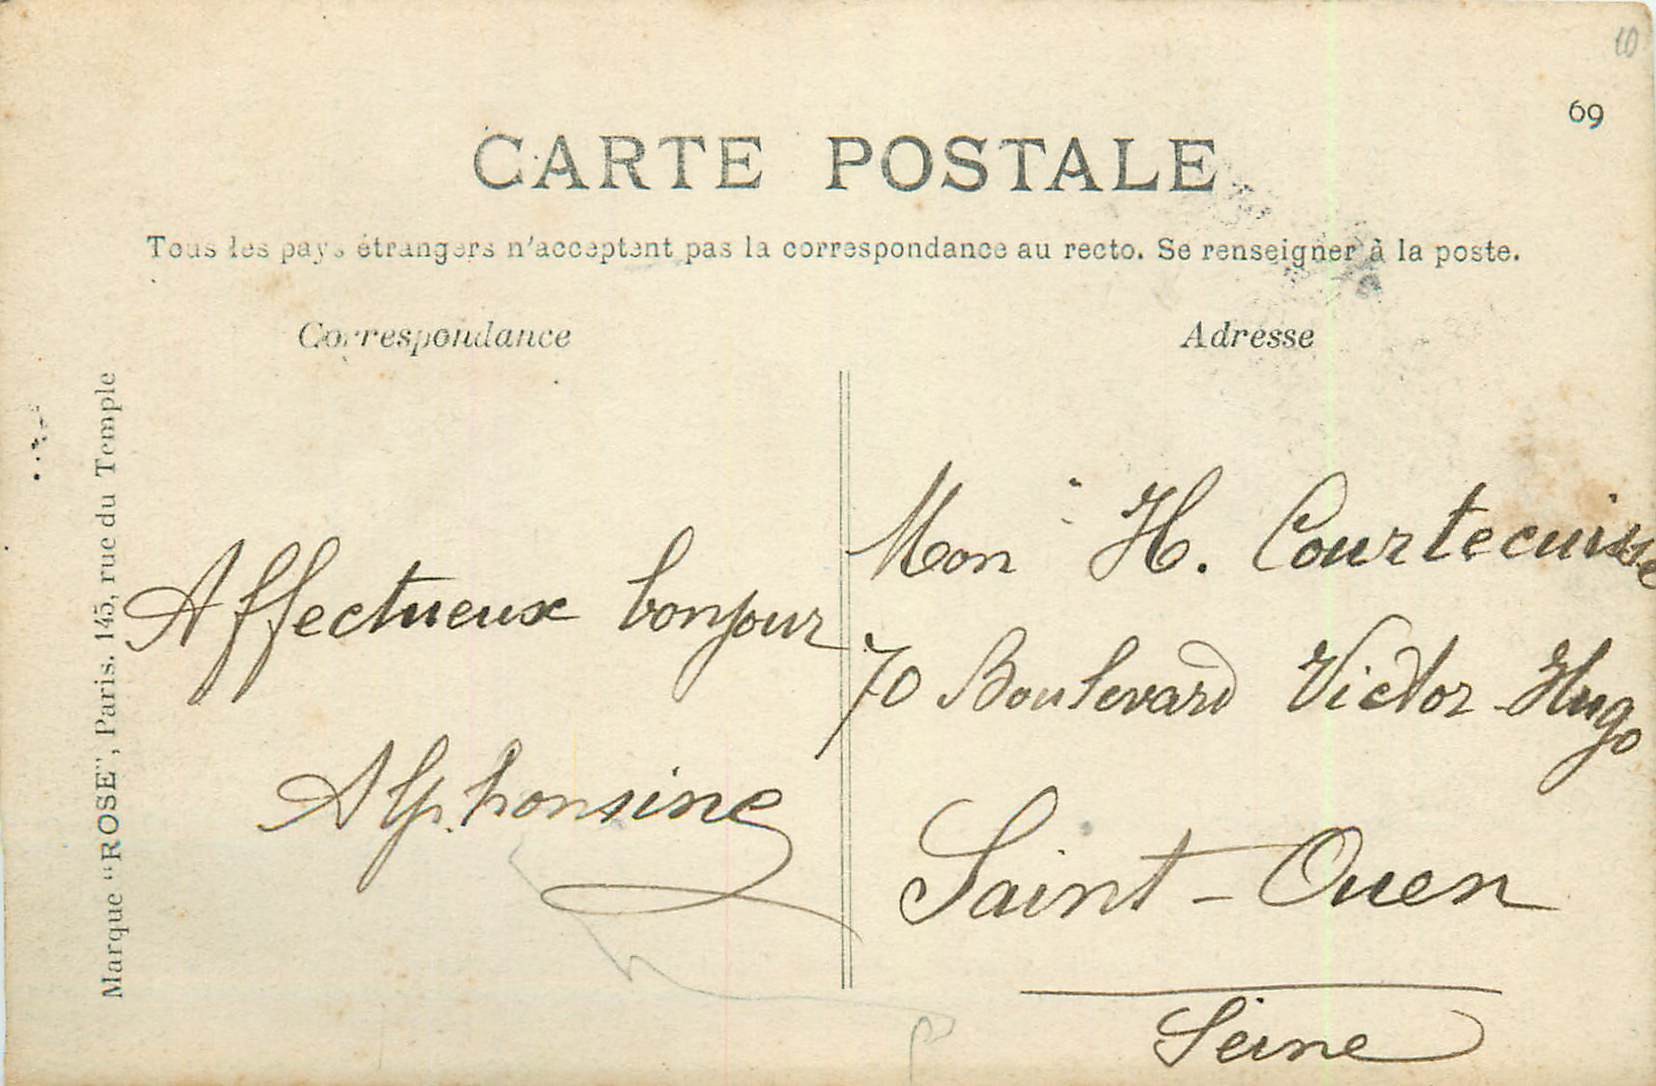 10
69
CARTE POSTALE
Tous les pays étrangers n'acceptent pas la correspondance au recto. Se renseigner à la poste.
Correspondance
Adresse
Marque "ROSE", Paris. 145, rue du Temple
Affectueux bonjour
Alphonsine
Mon H. Courtecuisse
70 Boulevard Victor Hugo
Saint-Ouen
Seine